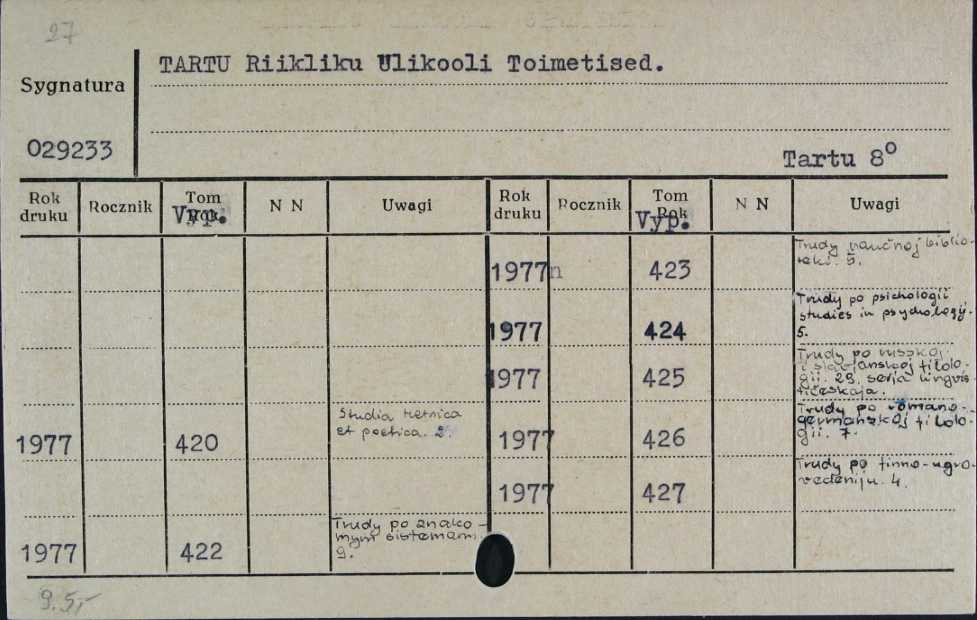 27
TARTU Riikliku Ulikooli Toimetised.
Sygnatura
029233
Tartu 8°
Rok druku Rocznik Tom Rok Vyp. N N Uwagi Rok druku Rocznik Tom Rok Vyp. N N Uwagi
1977 423 Trudy naučnoj biblio-
teki. 5.
1977 424 Trudy po psichologii
studies in psychology.
5.
1977 425 Trudy po russkoj
i slavjanskoj filolo-
gii. 29. serija lingvis
tičeskaja.
1977 420 Studia metrica
et poetica. 2.
1977 426 Trudy po romano-
germanskoj filolo-
gii. 7.
1977 427 Trudy po finno-ugro-
vedeniju. 4.
1977 422 Trudy po znako-
mym sistemam.
9.
9.5,-